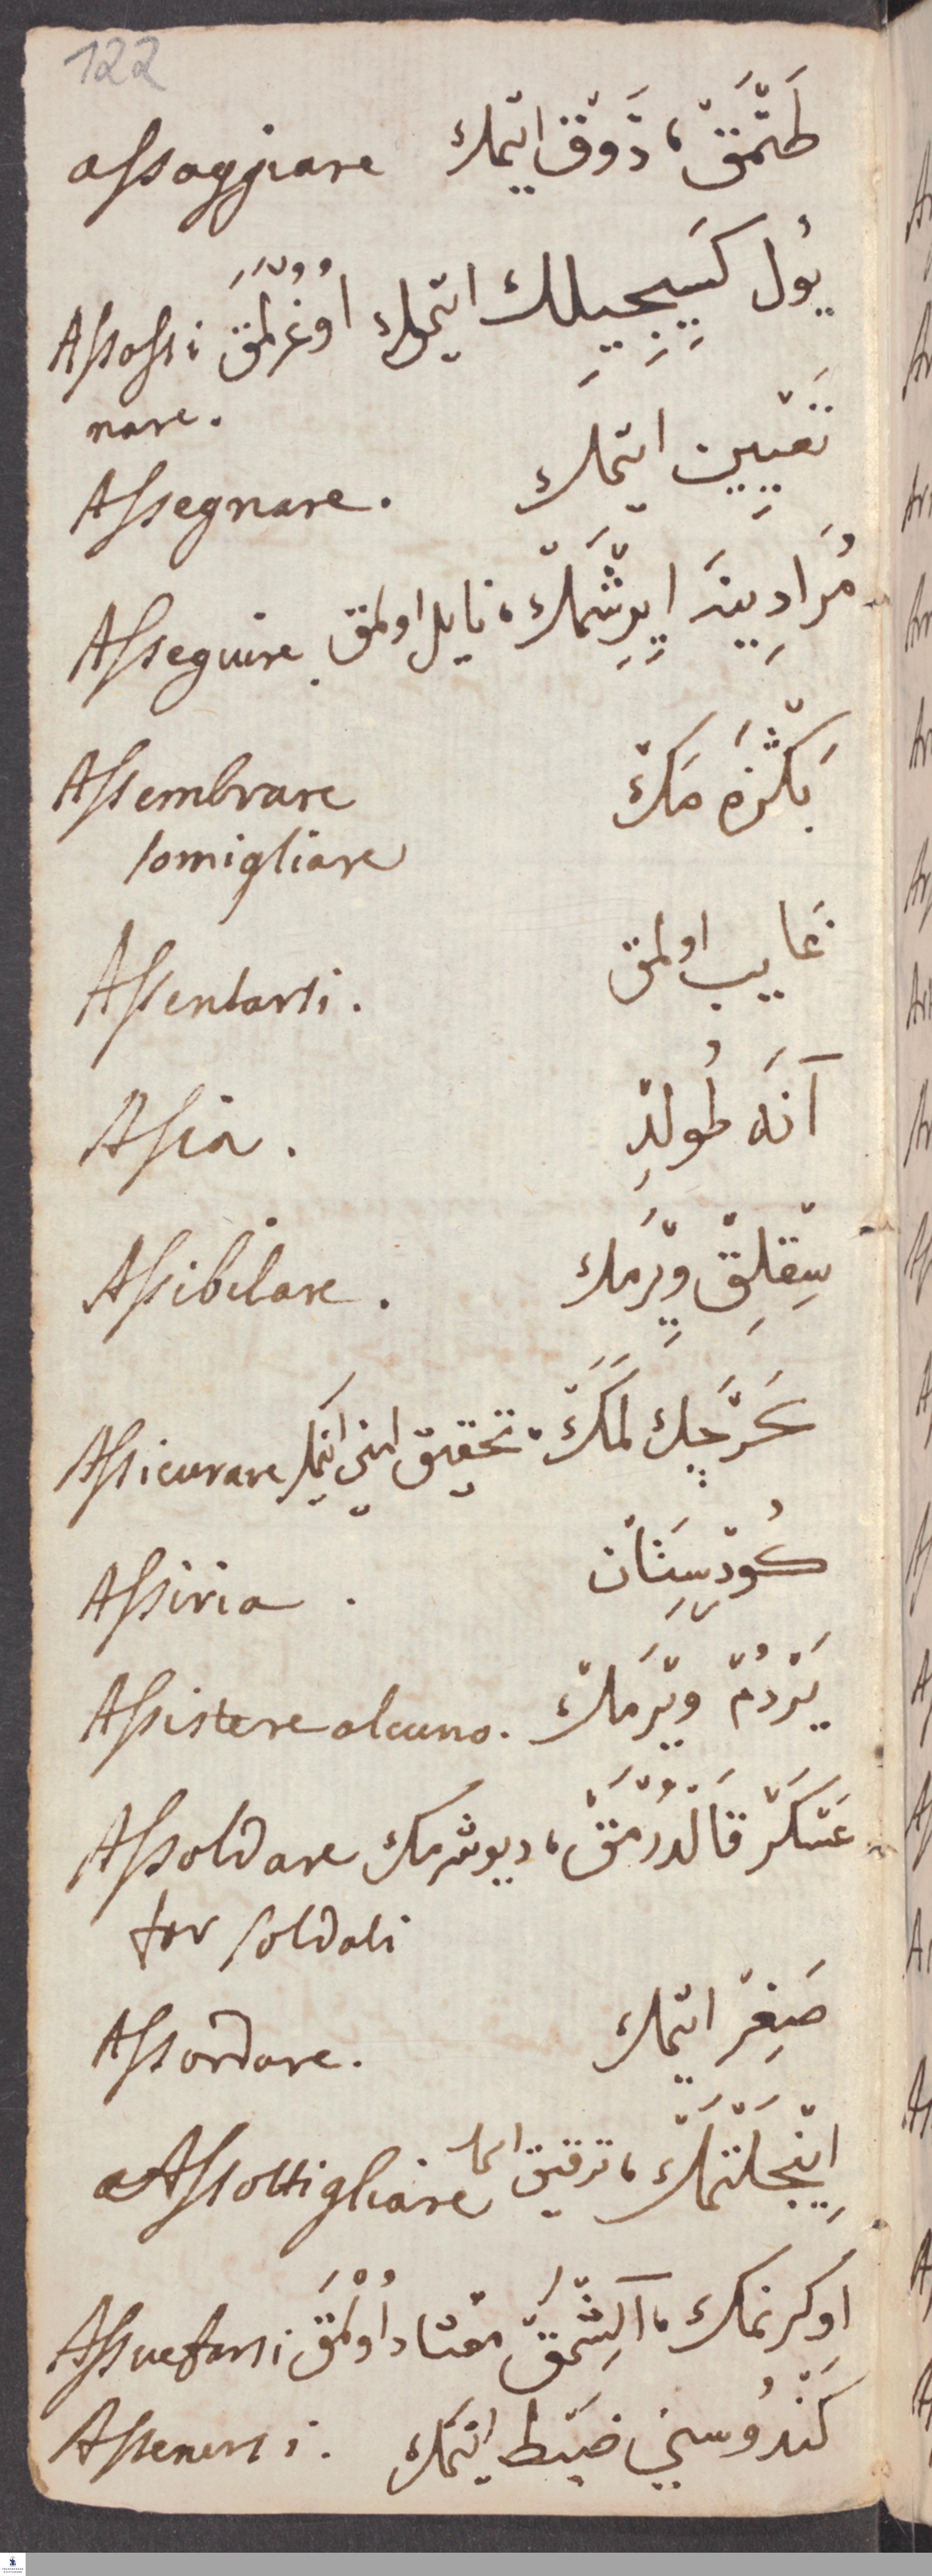 122
assaggiare طَتْمَقْ، ذَوْق اتمك
Assassi يُول كَسِيجِيلِك ايتمك اوُغُرلَمَق
nare.
Assegnare. تَعْيِين ايتمك
Asseguire. مُرَادِينَه اِيرِشْمَكْ، نايل اولمق
Assembrare بَكْزَه مَكْ
somigliare
Assentarsi. غَايب اولمق
Asia. آنَه طُولدِ
Assibilare. سِقْلِقْ وِيرْمك
Assicurare كَرْجَك لَمَكْ، تحقيق
Assiria. كُورْدِسِتَان
Assistere alcuno. يَرْدُمْ وِيرمَكْ
Assoldare عَسْكَرْ قَالْدُرْمَقْ، ديوشرمك
far soldati
Assordare. صَغِرْ ايتمك
Assottigliare اِينْجَلَتْمَكْ، ترقيق اتمك
Assuefarsi اوكرنمك، آلِشْمَقْ معتاد اُولْمَقْ
Astenersi. كَنْدُوسِنِي ضَبْط ايتمَك